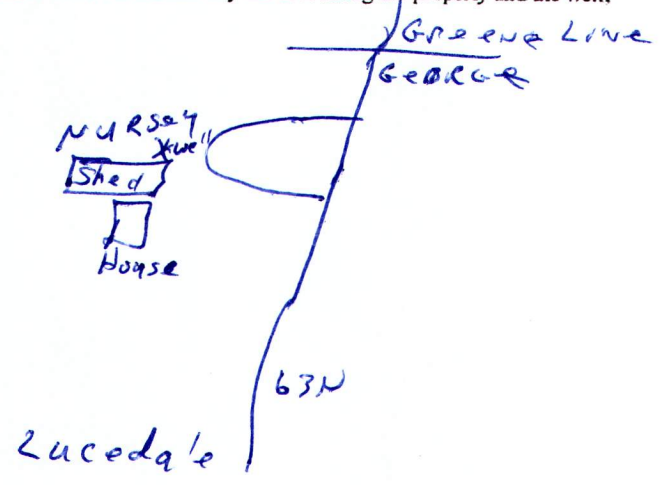 Greene Line
GEORGE
NURSEY
Xwell
Shed
House
63N
Lucedale